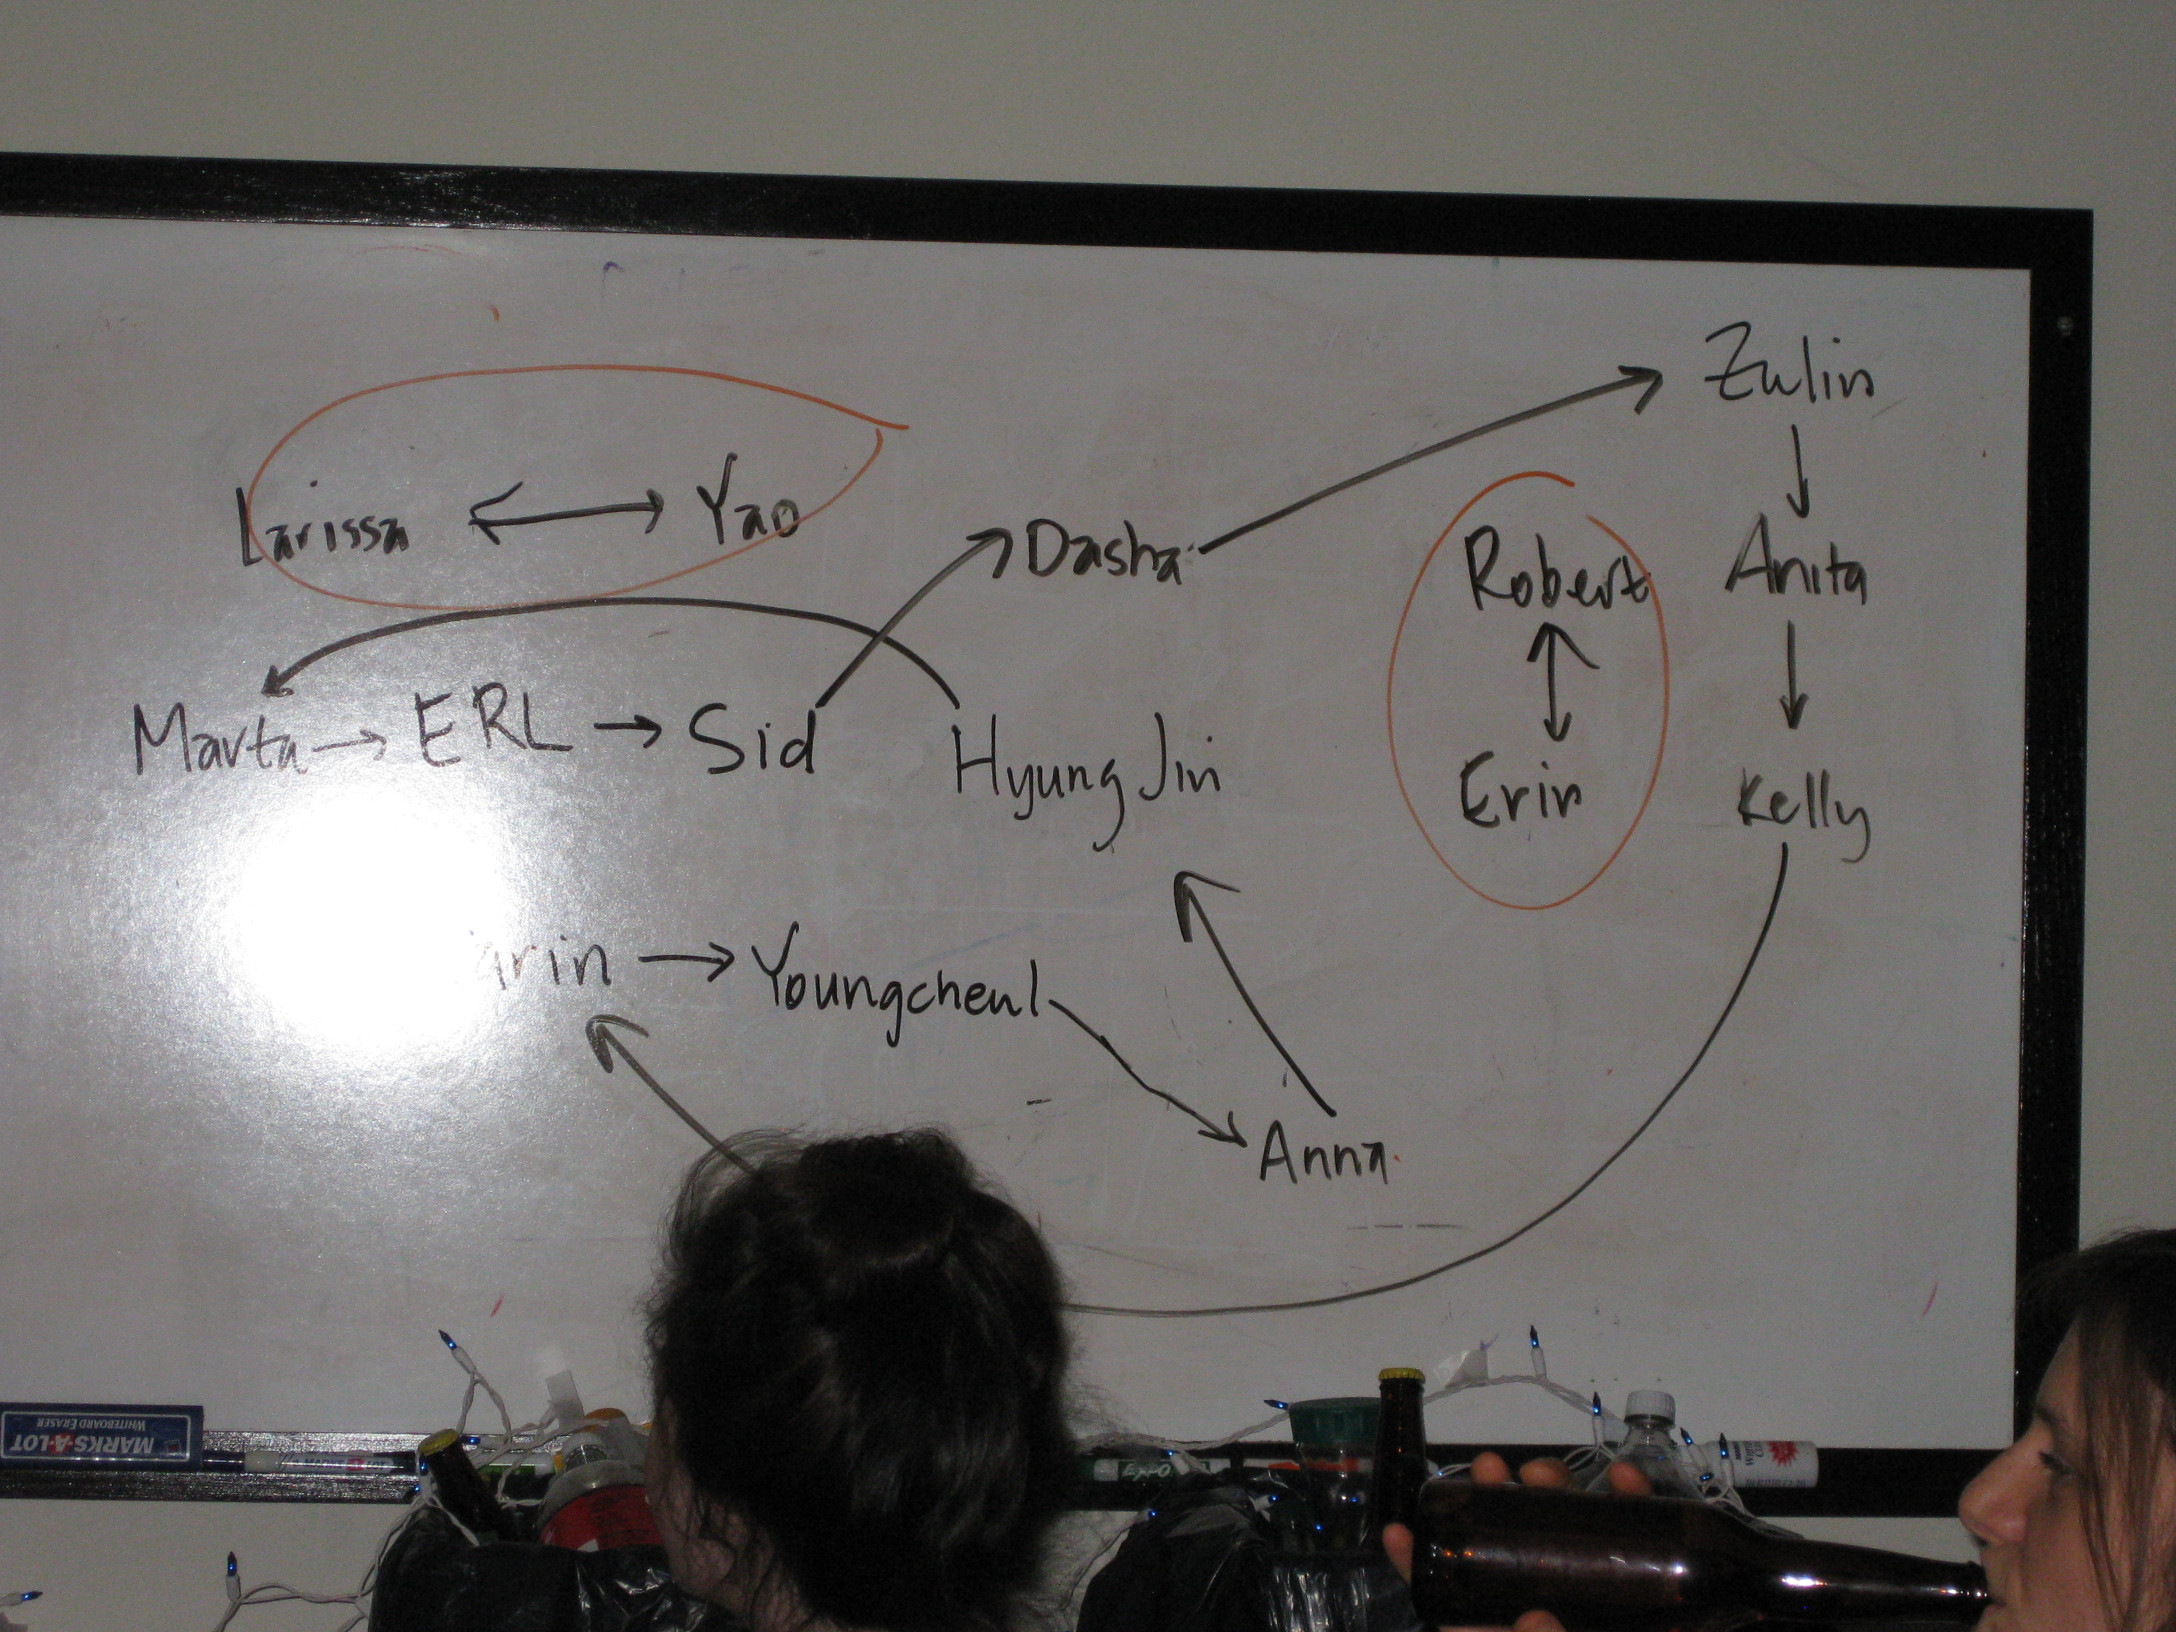 Zulin
Larissa ↔ Yao
Dasha
Robert
Anita
Marta → ERL → Sid
HyungJin
Erin
Kelly
Youngcheul
Anna
MARKS-A-LOT
WHITEBOARD ERASER
EXPO